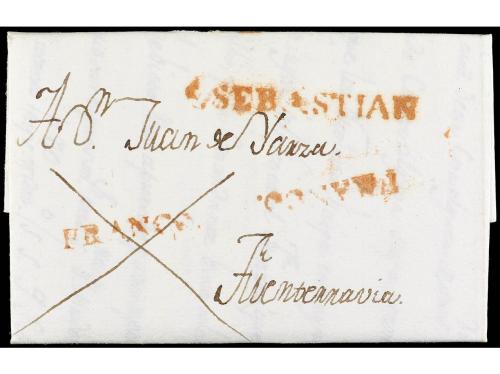 S.SEBASTIAN
A Dn. Juan de Yarza.
FRANCO.
FRANCO.
Fuenterravia.